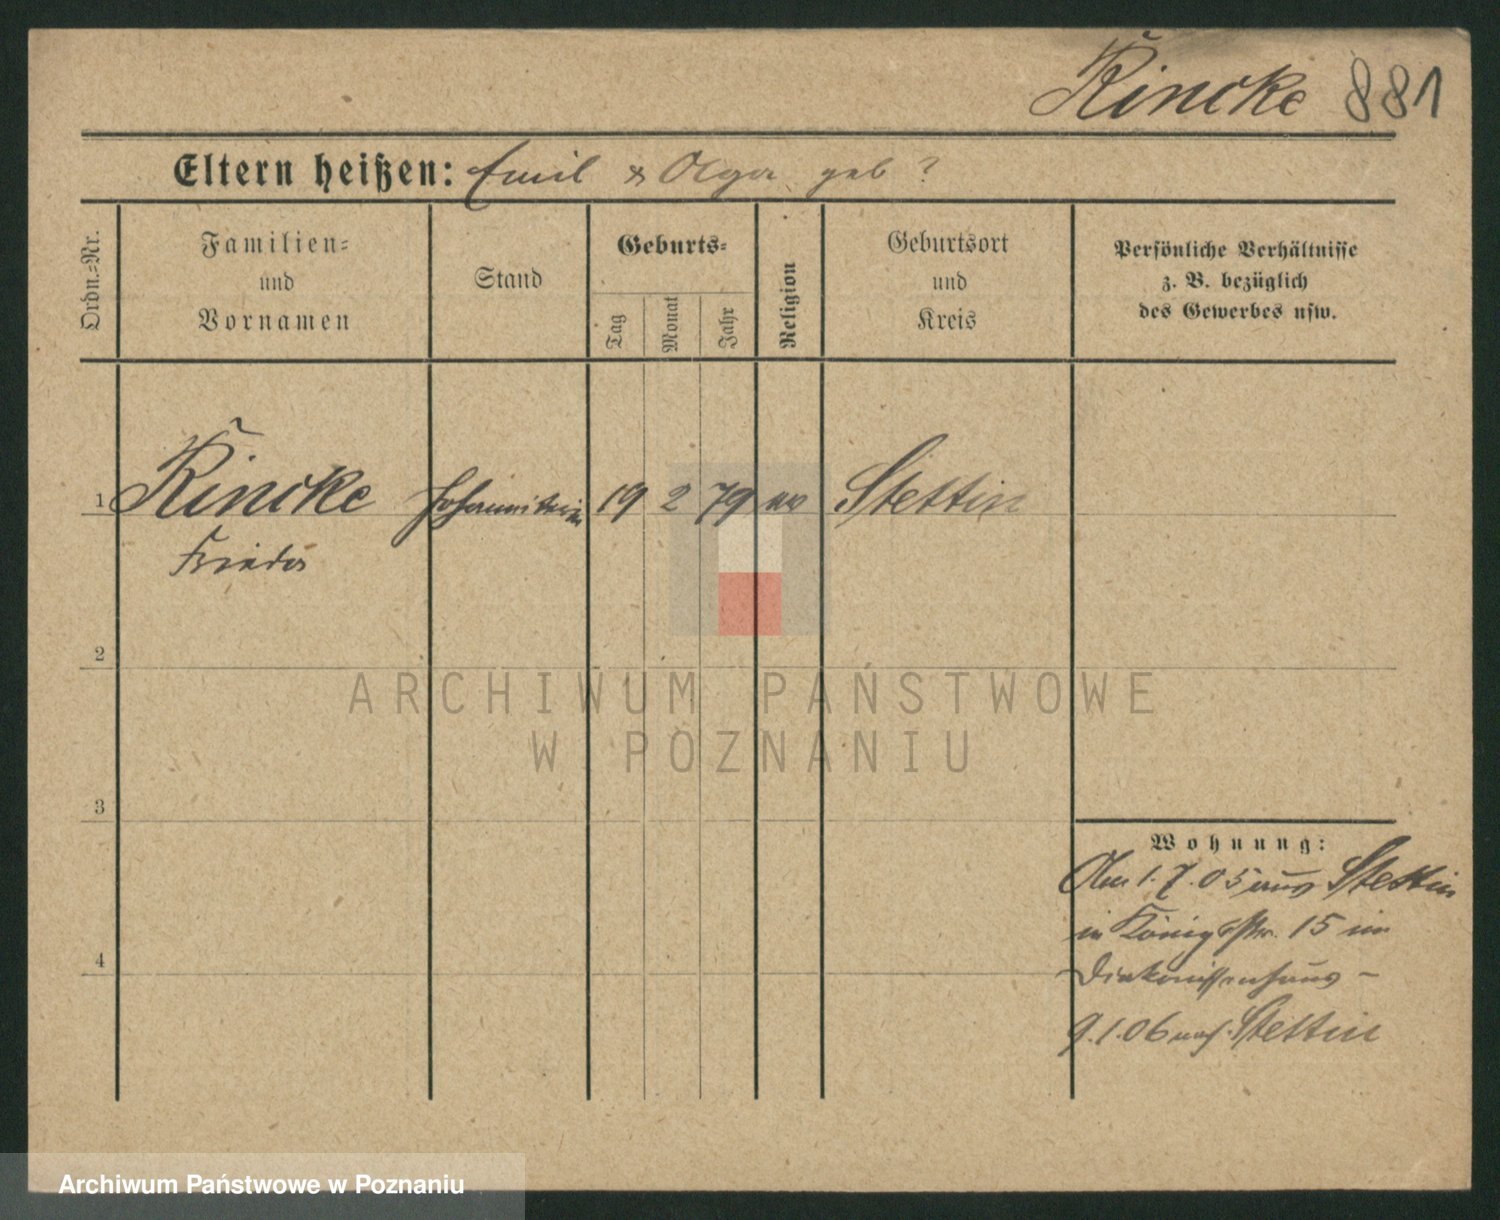 Rincke 881
Eltern heißen: Emil & Olga geb ?
Ordn.=Nr.
Familien=
und
Vornamen
Stand
Geburts=
Tag
Monat
Jahr
Religion
Geburtsort
und
Kreis
Persönliche Verhältnisse
z. B. bezüglich
des Gewerbes usw.
1 Rincke Johanniterin 19 2 79 ev Stettin
Frieda
2
3
4
Wohnung:
Am 1.7.05 aus Stettin
in Königsstr. 15 im
Diakonissenhaus –
9.1.06 nach Stettin
ARCHIWUM PAŃSTWOWE
W POZNANIU
Archiwum Państwowe w Poznaniu